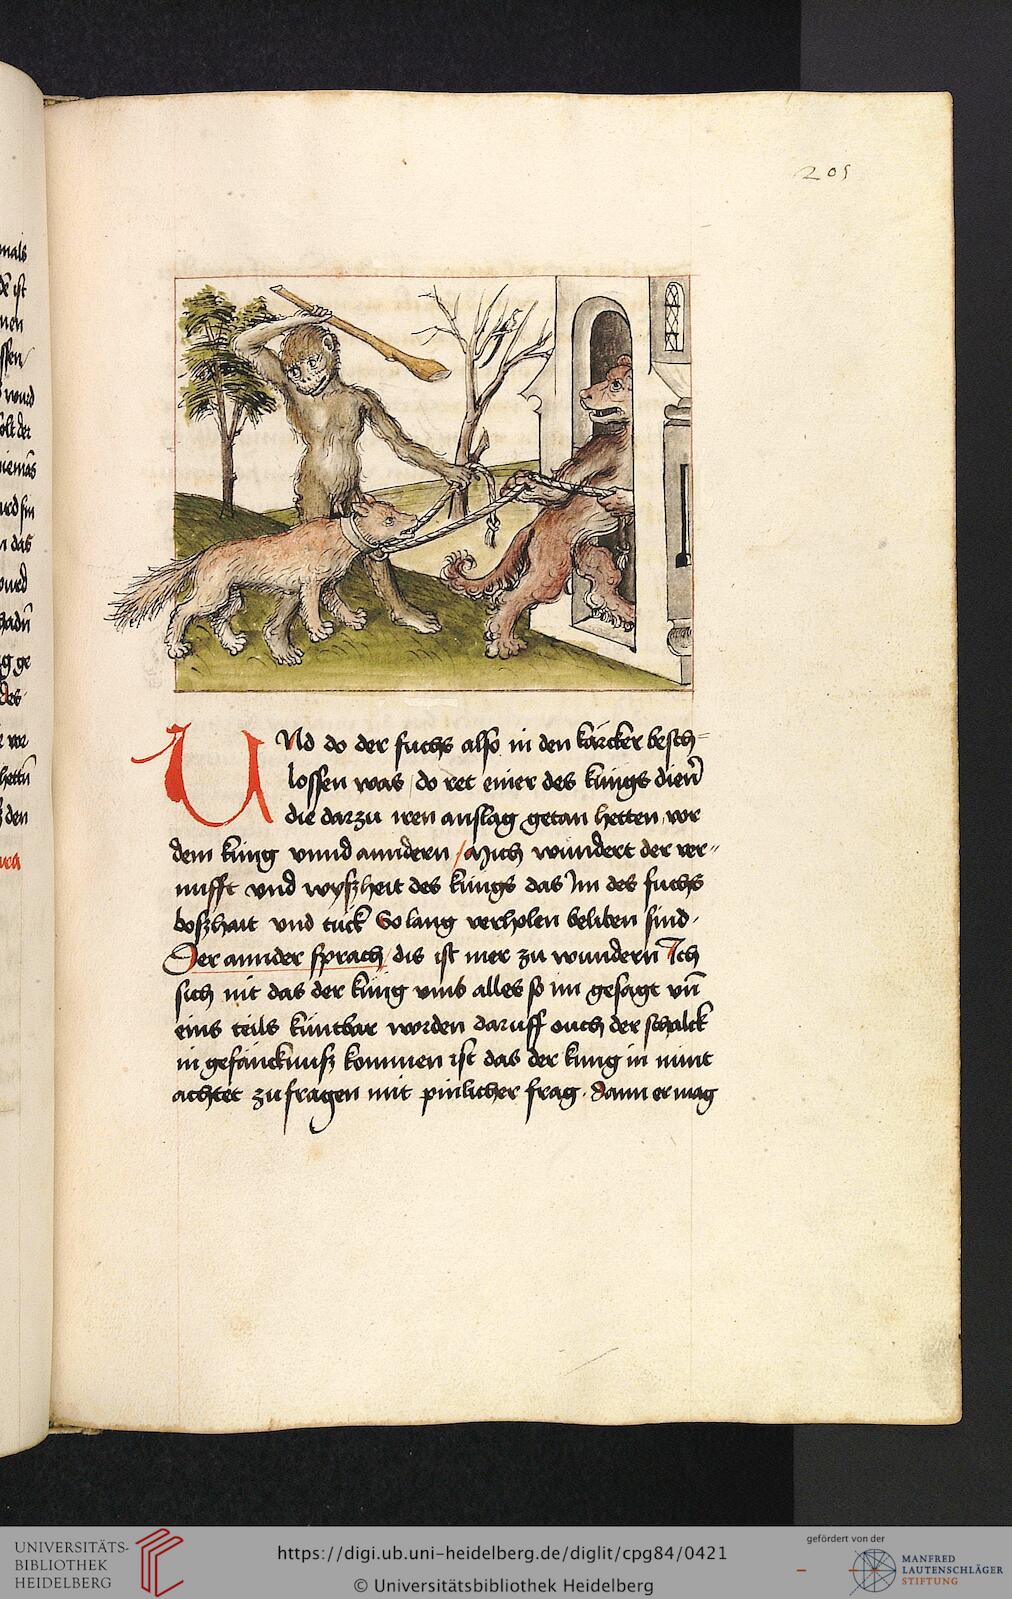 205
mals
dē ist
nen
ssen/
wurd
olt der
niemās
urd sin
n das
wurd
hadn̄
g ge
des
e vor
hettn̄
z den
UNd do der fuchs also in den kärcker besch=
lossen was / do ret einer des künigs dien̄
die darzu iren anslag getan hetten vor
dem küng vnnd anndern / Mich wundert der ver=
nufft vnd wyszheit des küngs das Im des fuchs
boszhait vnd tück So lang verholen beliben sind ·
Der annder sprach / dis ist mer zu wundern Ich
sich nit das der küng vmb alles so im gesagt vn̄
eins teils küntbar worden daruff ouch der schalck
in gefäncknusz kommen ist das der küng in nünt
achtet zu fragen mit pinlicher frag · dann er mag
UNIVERSITÄTS-
BIBLIOTHEK
HEIDELBERG
https://digi.ub.uni-heidelberg.de/diglit/cpg84/0421
© Universitätsbibliothek Heidelberg
gefördert von der
MANFRED
LAUTENSCHLÄGER
STIFTUNG